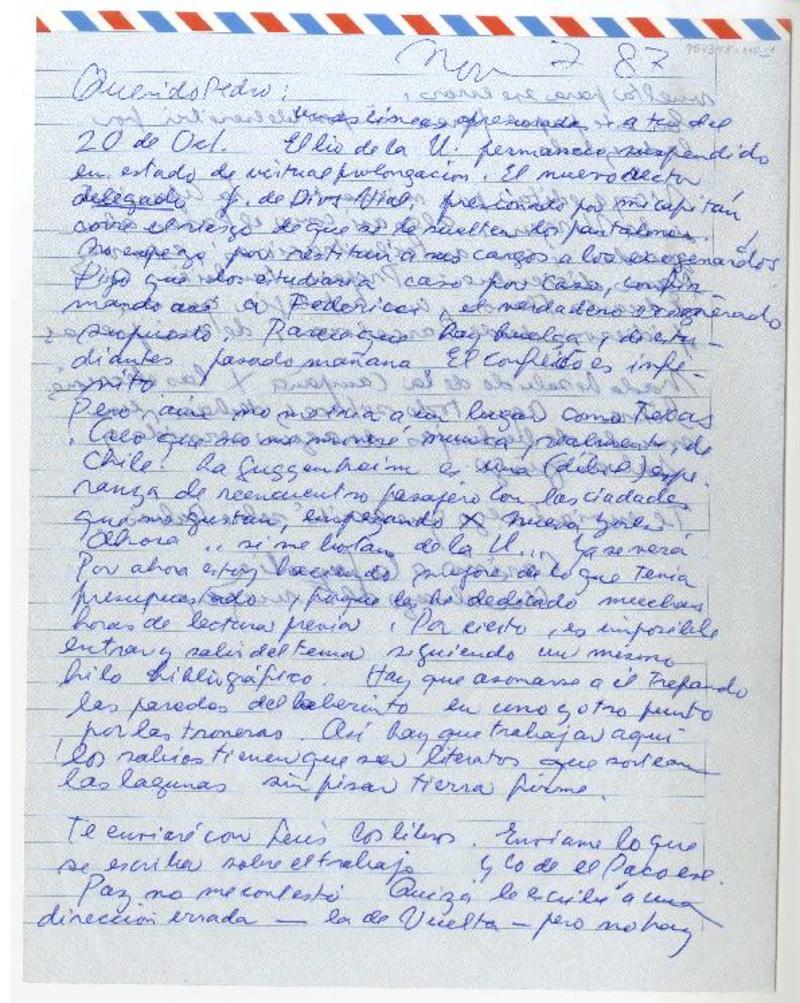 Nov 2 87
Querido Pedro:
unas líneas apresuradas a tu del
20 de Oct. El lío de la U. permanece suspendido
en estado de virtual prolongación. El nuevo rector
delegado J. de Dios Vial, presionado por mi capitán
corre el riesgo de que se le suelten los pantalones.
No empezó por restituir a sus cargos a los exonerados
Dijo que los estudiaría caso por caso, confir-
mando así a Federici, el verdadero exonerado
supuesto. Parece que hay huelga de estu-
diantes pasado mañana El conflicto es infi-
nito
Pero aún no me iría a un lugar como Texas
. Creo que no me moveré nunca, realmente, de
Chile. La Guggenheim es una (débil) espe-
ranza de reencuentro pasajero con las ciudades
que me gustan, empezando x Nueva York.
Ahora .. si me botan de la U... ya se verá
Por ahora estoy haciendo mejor de lo que tenía
presupuestado, porque les he dedicado muchas
horas de lectura previa. Por cierto, es imposible
entrar y salir del tema siguiendo un mismo
hilo bibliográfico. Hay que asomarse a él trepando
las paredes del laberinto en uno y otro punto
por las troneras. Así hay que trabajar aquí
los sabios tienen que ser literatos que sortean
las lagunas sin pisar tierra firme.
Te enviaré con Luis los libros. Envíame lo que
se escriba sobre el trabajo y lo de el Paco ese.
Paz no me contestó Quizá le escribí a una
dirección errada — la de Vuelta — pero no hay